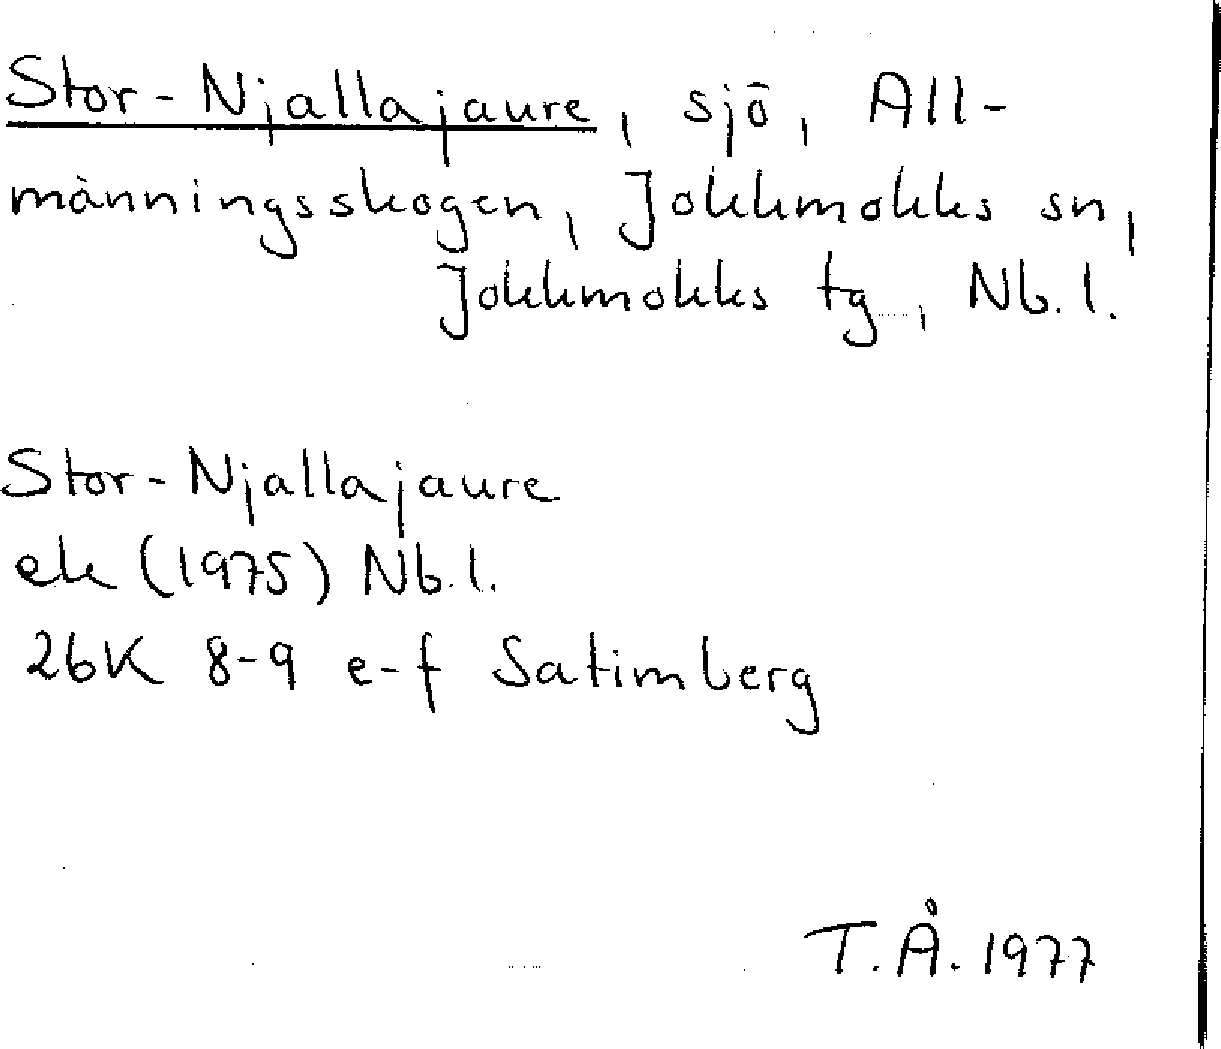 Stor-Njallajaure, sjö, All-
männingsskogen, Jokkmokks sn,
Jokkmokks tg, Nb.l.
Stor-Njallajaure
ek (1975) Nb.l.
26K 8-9 e-f Satimberg
T.Å. 1977